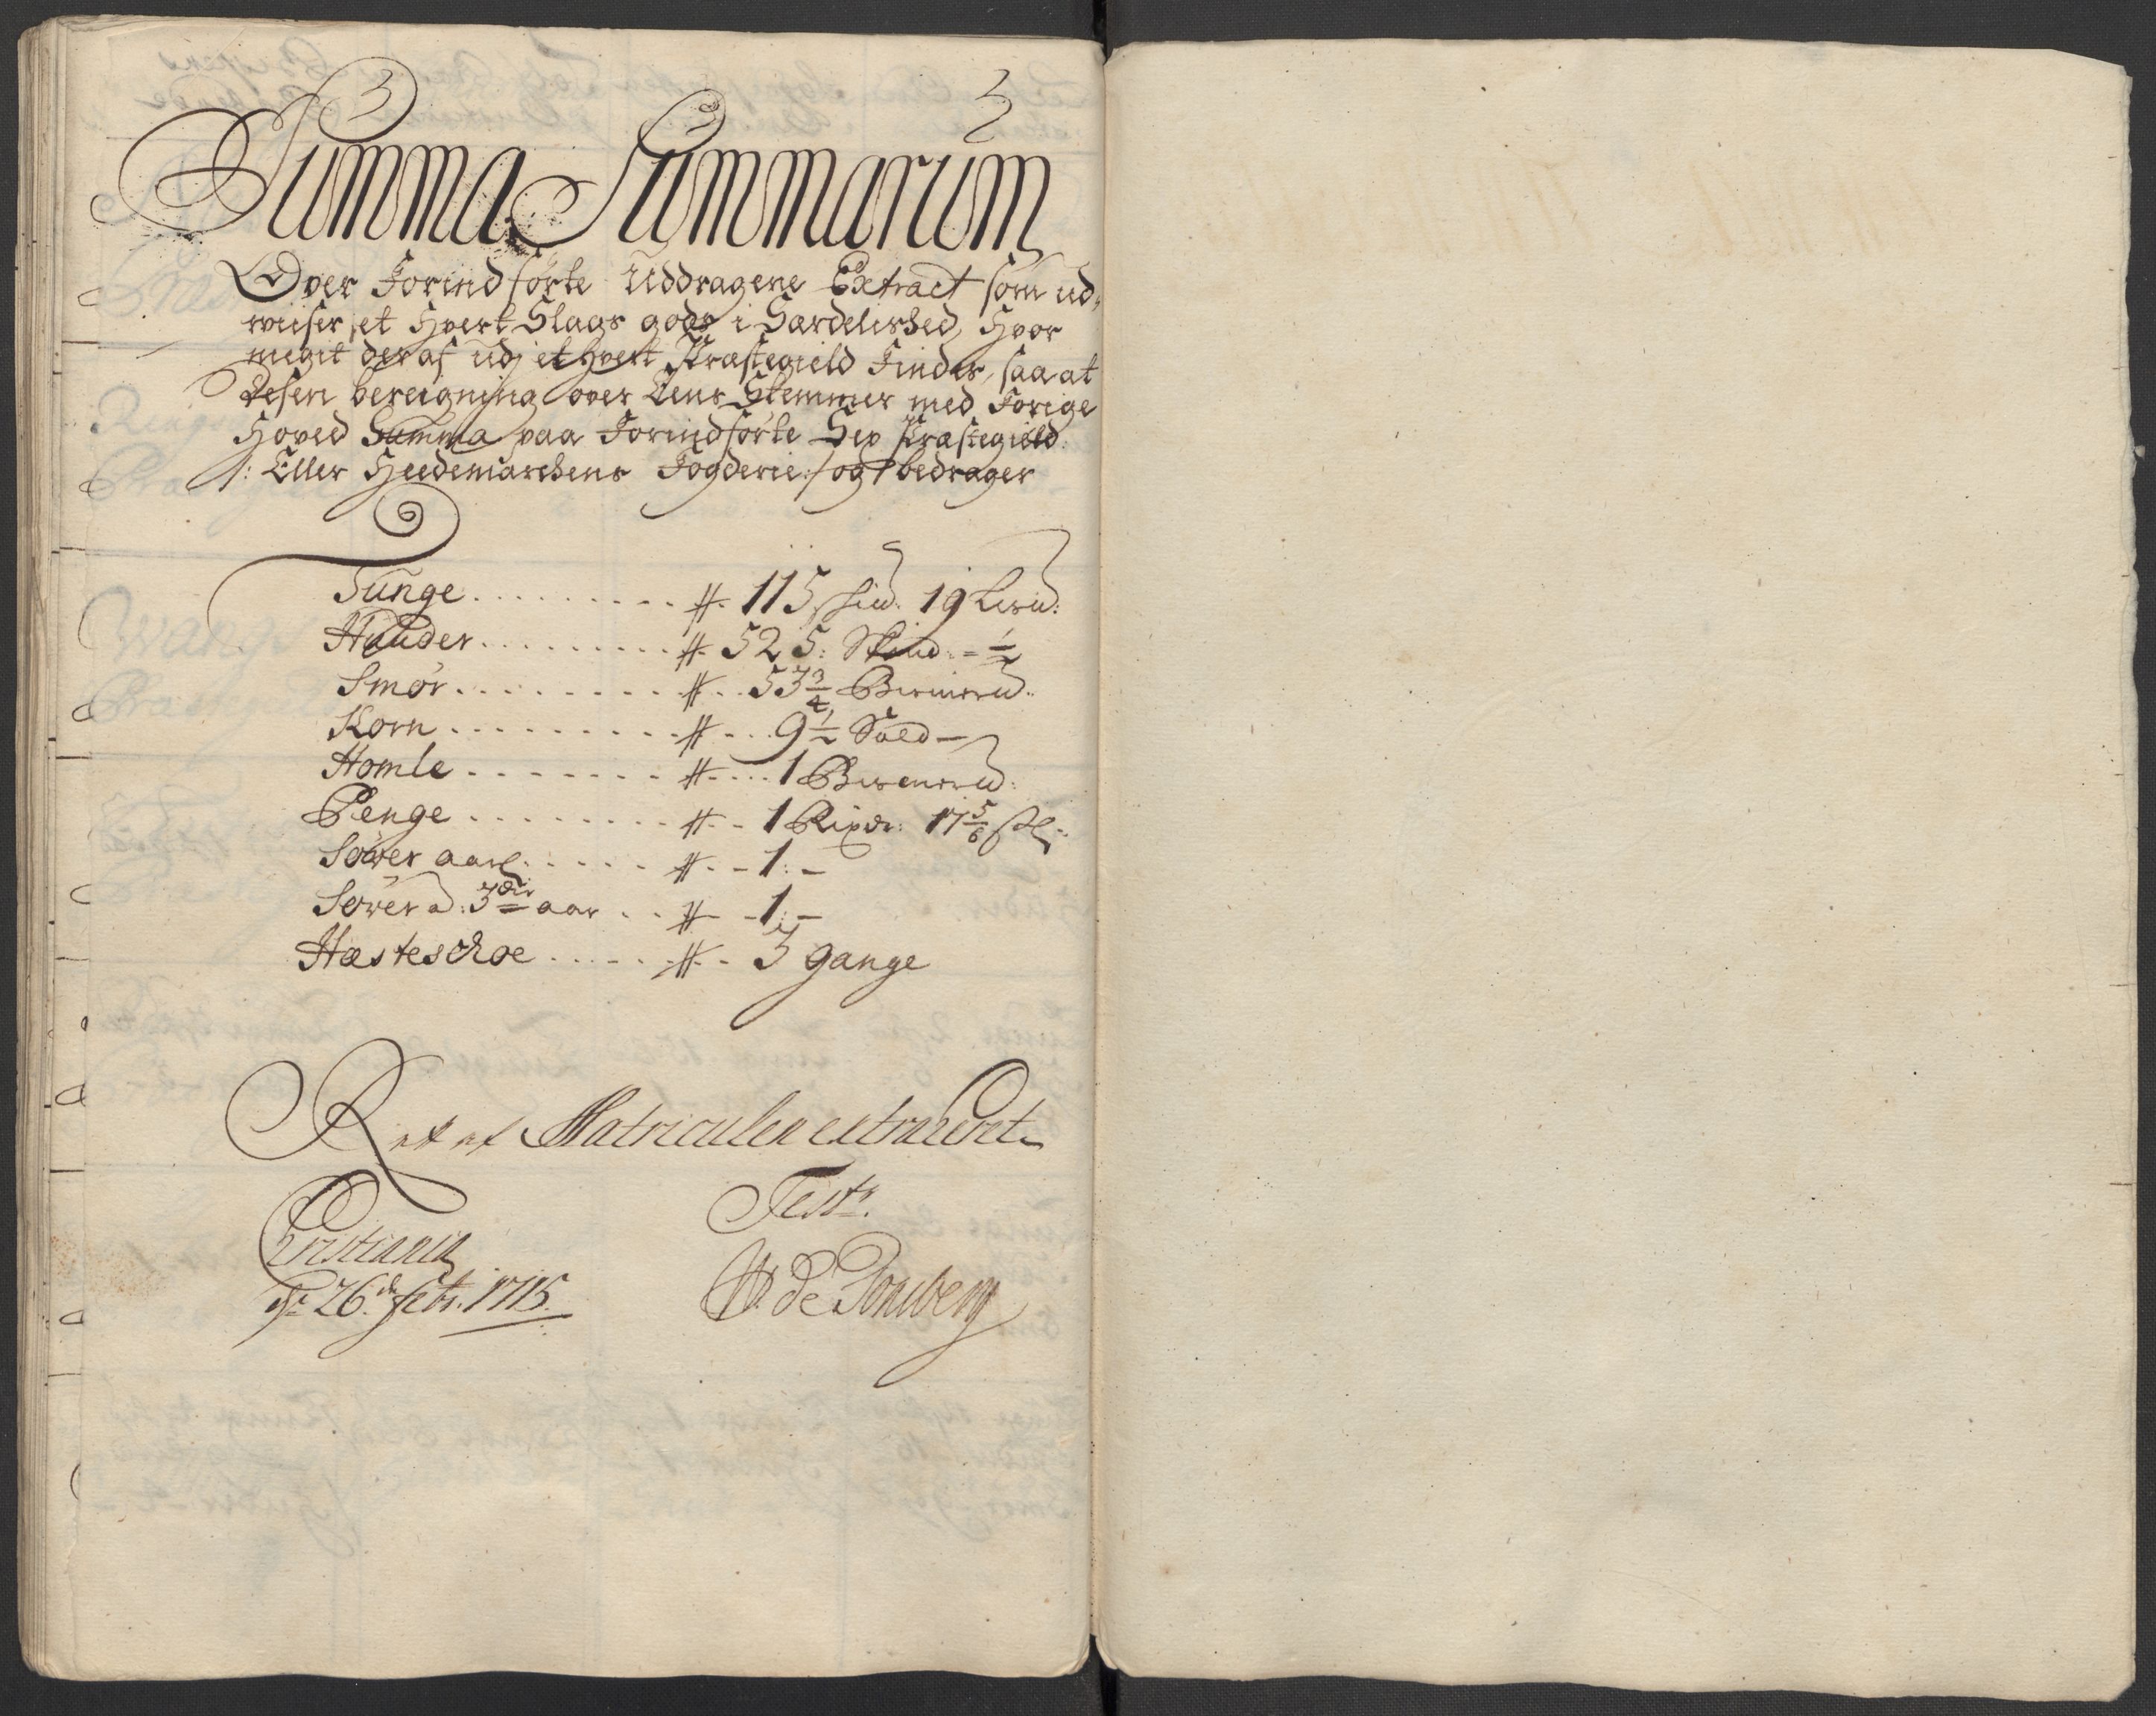 Summa Summarum
Over Forindførte Uddragene Extract som ud-
wiiser, et Hvert Slags gods i Særdelished, Hvor
megit deraf udj et hvert Præstegield Findes, saa at
Desen beregning over Eens Stemmer med Forige
Hoved Summa paa Forindførte Sex Præstegield
/: Eller Heedemarchens Fogderie :/ og bedrager
Tunge . . . . . . . . . # 115 skid. 19 Lisd:
Huuder . . . . . . . . . # 525: Skind: - ½
Smør . . . . . . . . # . . 53¾ Bismerd:
Korn . . . . . . . . . # - . . 9½ Sold —
Homle . . . . . . . # . . . . 1 Bismerd:
Penge . . . . . . . . # . - 1 Rixdr: 17⅚ sh:
Søwer aarl. . . . . . # . - 1: -
Søwer ad: 3die aar . . # - 1: -
Hæsteschoe . . . . . # . - 3 gange
Ret af Matriculen extraheret
Test:
Cristiania
d: 26de Febr. 1715.